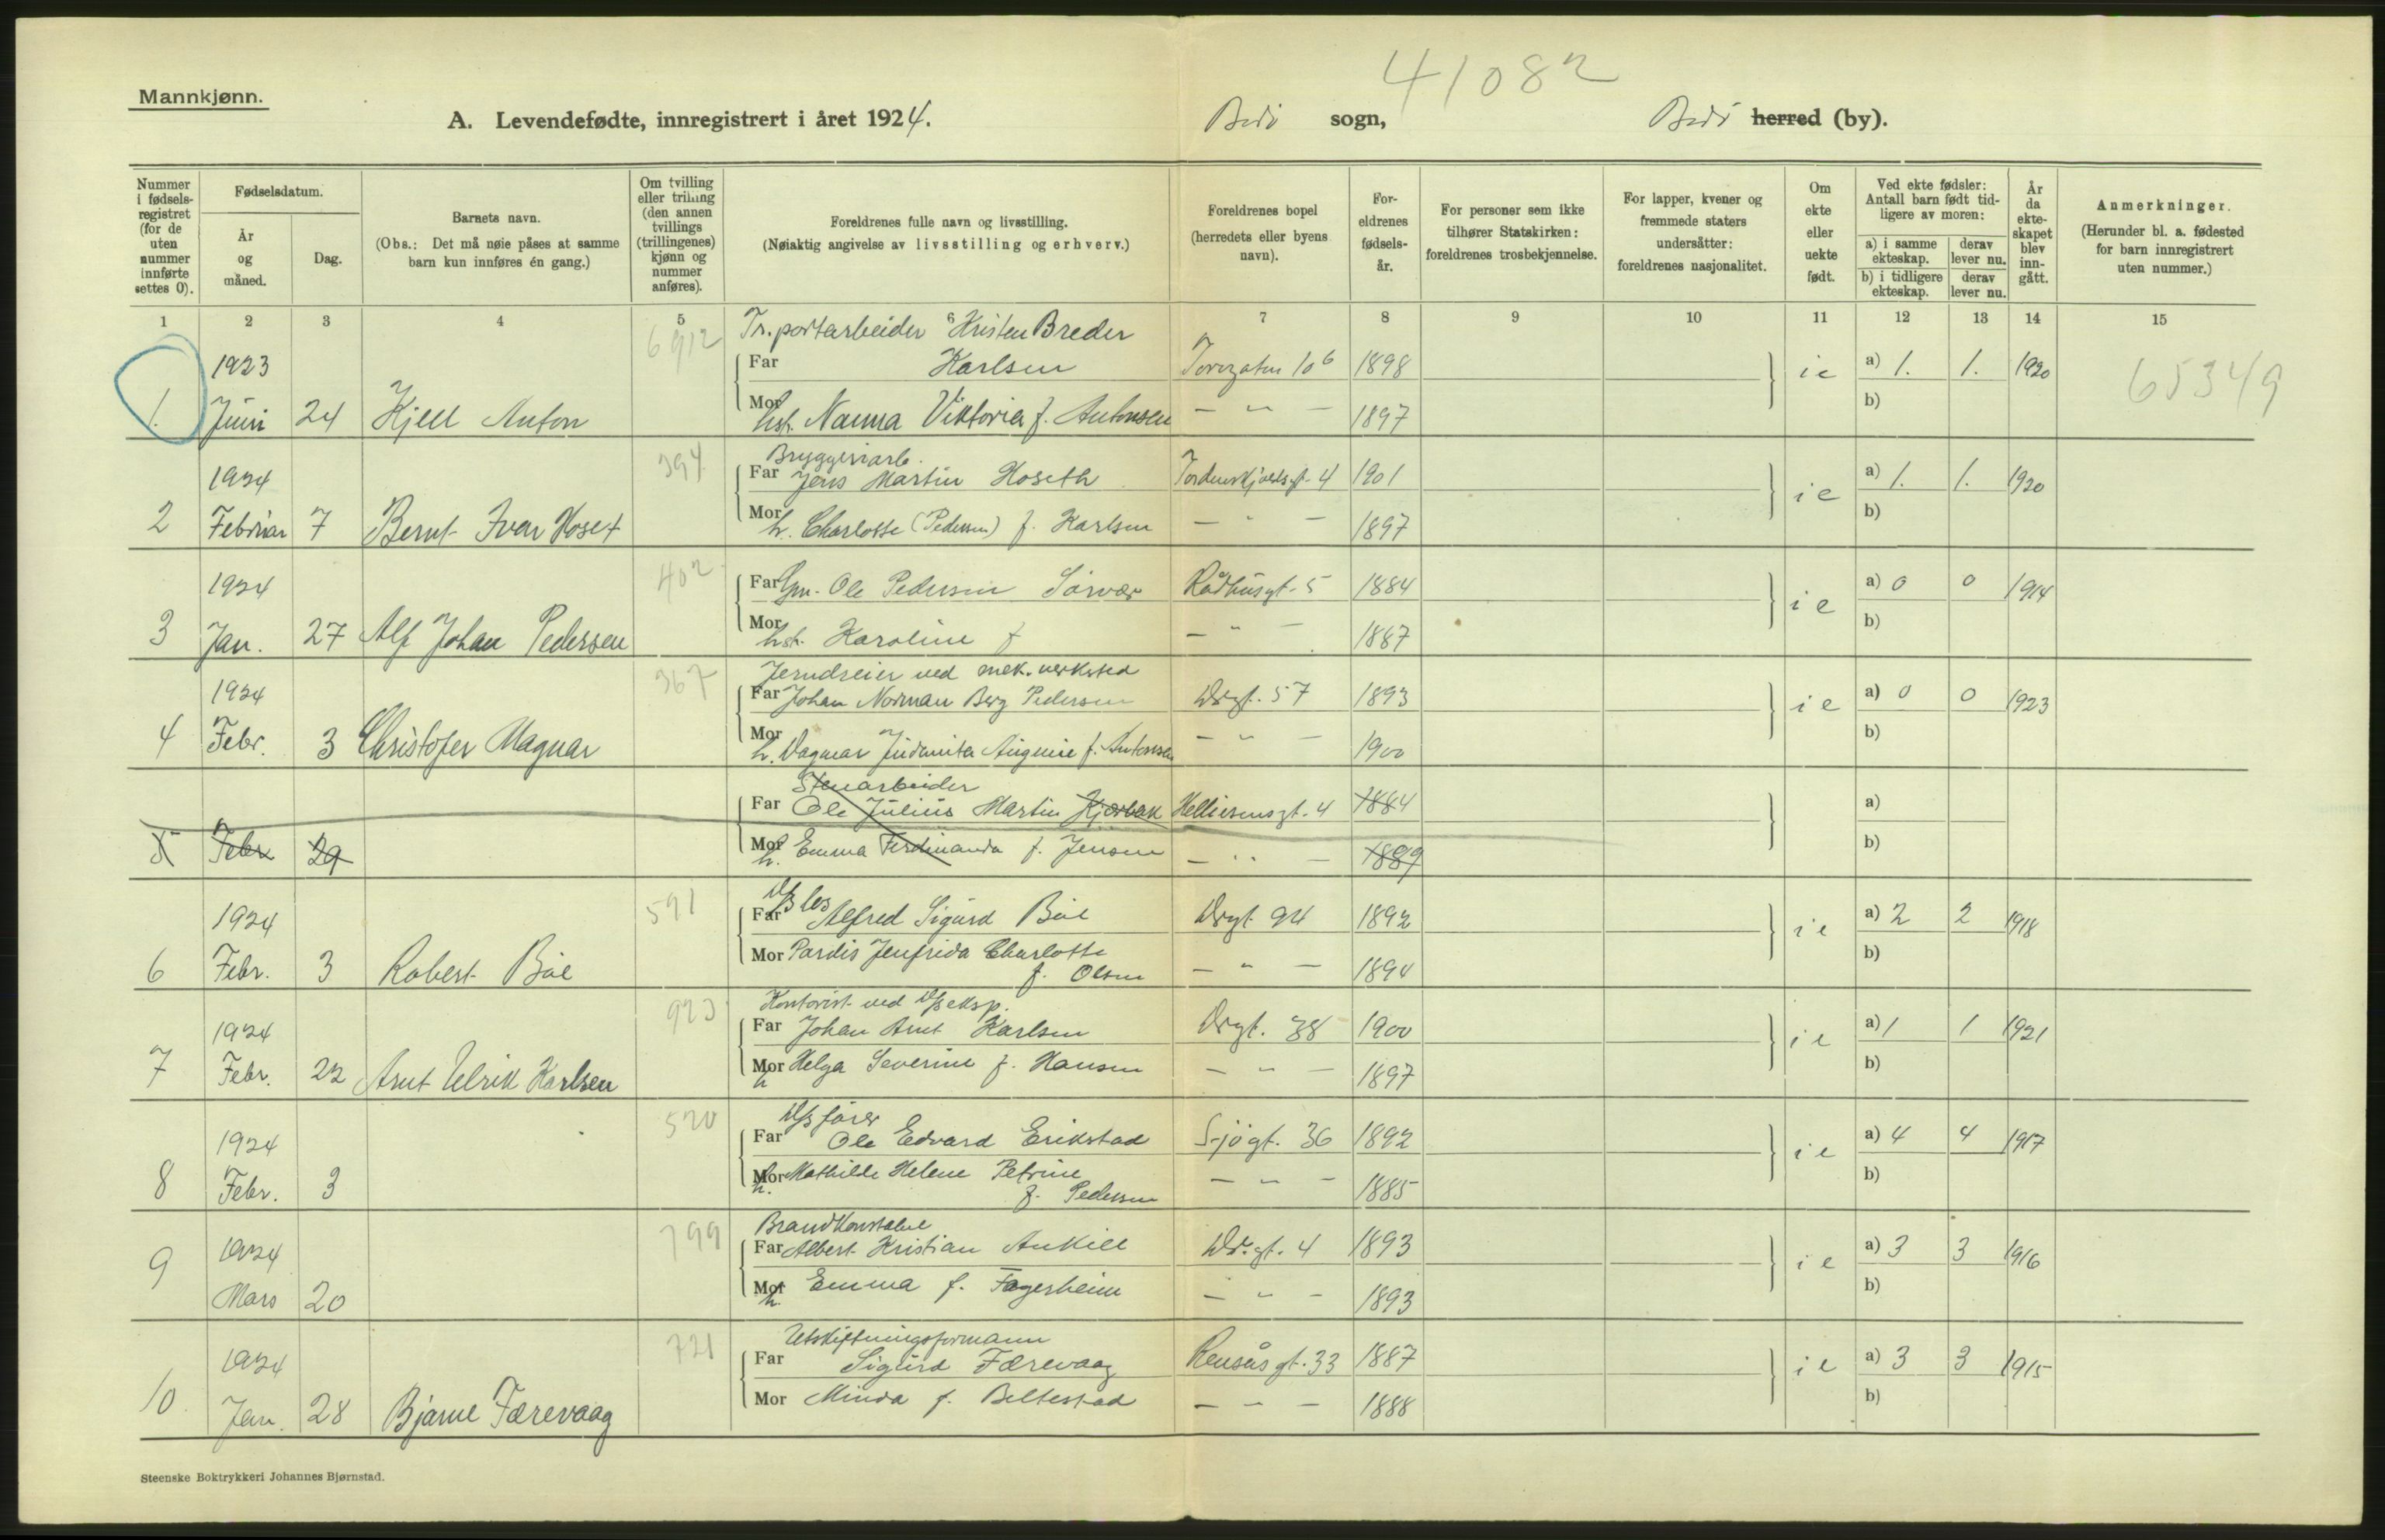 41082
Mannkjønn.
A. Levendefødte, innregistrert i året 1924.
Bodø sogn,
Bodø herred (by).
Nummer i fødsels-registret (for de uten nummer innførte settes 0).
Fødselsdatum.
År og måned.
Dag.
Barnets navn.
(Obs.: Det må nøie påses at samme barn kun innføres én gang.)
Om tvilling eller trilling (den annen tvillings (trillingenes) kjønn og nummer anføres).
Foreldrenes fulle navn og livsstilling.
(Nøiaktig angivelse av livsstilling og erhverv.)
Foreldrenes bopel (herredets eller byens navn).
For-eldrenes fødsels-år.
For personer som ikke tilhører Statskirken: foreldrenes trosbekjennelse.
For lapper, kvener og fremmede staters undersåtter: foreldrenes nasjonalitet.
Om ekte eller uekte født.
Ved ekte fødsler: Antall barn født tid-ligere av moren:
a) i samme ekteskap.
derav lever nu.
b) i tidligere ekteskap.
derav lever nu.
År da ekte-skapet blev inn-gått.
Anmerkninger.
(Herunder bl. a. fødested for barn innregistrert uten nummer.)
1 2 3 4 5 6 7 8 9 10 11 12 13 14 15
6912 Tr.portarbeider Kristen Breder
1923 Far Karlsen Torvgaten 10b 1898 ie a) 1. 1. 1920 65349
1. Juni 24 Kjell Anton Mor hst. Nanna Viktoria f. Antonsen — " — 1897 b)
394 Bryggeriarb.
1924 Far Jens Martin Hoseth Tordenskjoldsgt. 4 1901 ie a) 1. 1. 1920
2 Februar 7 Bernt Ivar Hoset Mor h. Charlotte (Pedersen) f. Karlsen — " — 1897 b)
402
1924 Far Gm. Ole Pedersen Sørvær Rådhusgt. 5 1884 ie a) 0 0 1914
3 Jan. 27 Alf Johan Pedersen Mor hst. Karoline f — " — 1887 b)
367 Jerndreier ved mek. verksted
1924 Far Johan Norman Berg Pedersen Drgt. 57 1893 ie a) 0 0 1923
4 Febr. 3 Christofer Magnar Mor h. Dagmar Judanita Augusie f. Antonsen — " — 1900 b)
Stenarbeider
Far Ole Julius Martin Kjærbak Helliesensgt. 4 1884 a)
5 Febr 29 Mor h. Emma Ferdinanda f. Jensen — " — 1889 b)
591
1924 Far Alfred Sigurd Bøe Drgt 94 1892 ie a) 2 2 1918
6 Febr. 3 Robert Bøe Mor Pardis Jenfrida Charlotte
f. Olsen — " — 1894 b)
923 Kontorist ved D/seksp.
1924 Far Johan Arnt Karlsen Drgt. 38 1900 ie a) 1 1 1921
7 Febr. 22 Arnt Ulrik Karlsen Mor h Helga Severine f. Hansen — " — 1897 b)
520 D/s fører
1924 Far Ole Edvard Erikstad Sjøgt. 36 1892 ie a) 4 4 1917
8 Febr. 3 Mor h. Mathilde Helene Petrine
f. Pedersen — " — 1885 b)
799 Brandkonstabel
1924 Far Albert Kristian Ankill Dr.gt. 4 1893 ie a) 3 3 1916
9 Mars 20 Mor h. Emma f. Fagerheim — " — 1893 b)
721 Utskiftningsformann
1924 Far Sigurd Færevaag Rensåsgt. 33 1887 ie a) 3 3 1915
10. Jan. 28 Bjarne Færevaag Mor Minda f. Beltestad — " — 1888 b)
Steenske Boktrykkeri Johannes Bjørnstad.